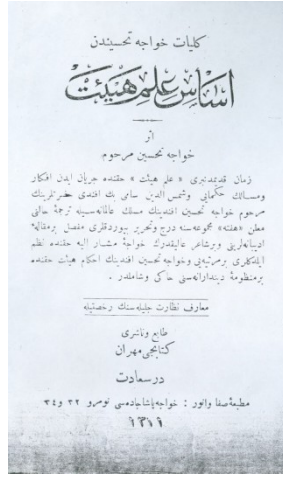 كليات خواجه تحسيندن
اساس علم هيئت
اثر
خواجه تحسين مرحوم
زمان قديمدنبرى « علم هيئت » حقنده جريان ايدن افكار
ومسالك حكمايى وشمس الدين سامى بك افندى حضرتلرينك
مرحوم خواجه تحسين افندينك مسلك عالمانه‌سيله ترجمهٔ حالنى
معلن «هفته» مجموعه‌سنه درج وتحرير بيوردقلرى مفصل برمقالهٔ
اديبانه‌لرينى وبرشاعر عاليقدرك خواجهٔ مشار اليه حقنده نظم
ايلدكلرى برمرثيه‌يى وخواجه تحسين افندينك احكام هيئت حقنده
برمنظومهٔ ديندارانه‌سنى حاكى وشاملدر .
معارف نظارت جليله‌سنك رخصتيله
طابع وناشرى
كتابجى مهران
درسعادت
مطبعهٔ صفا وانور : خواجه پاشا جاده‌سى نومرو ٣٢ و ٣٤
١٣١١